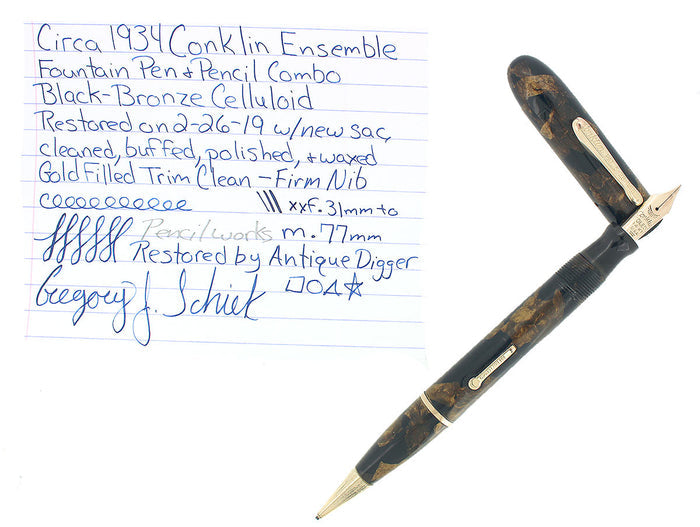 Circa 1934 Conklin Ensemble
Fountain Pen + Pencil Combo
Black-Bronze Celluloid
Restored on 2-26-19 w/new sac,
cleaned, buffed, polished, + waxed
Gold Filled Trim Clean - Firm Nib
xxF .31mm to
Pencil works m .77mm
Restored by Antique Digger
Gregory J. Schiek